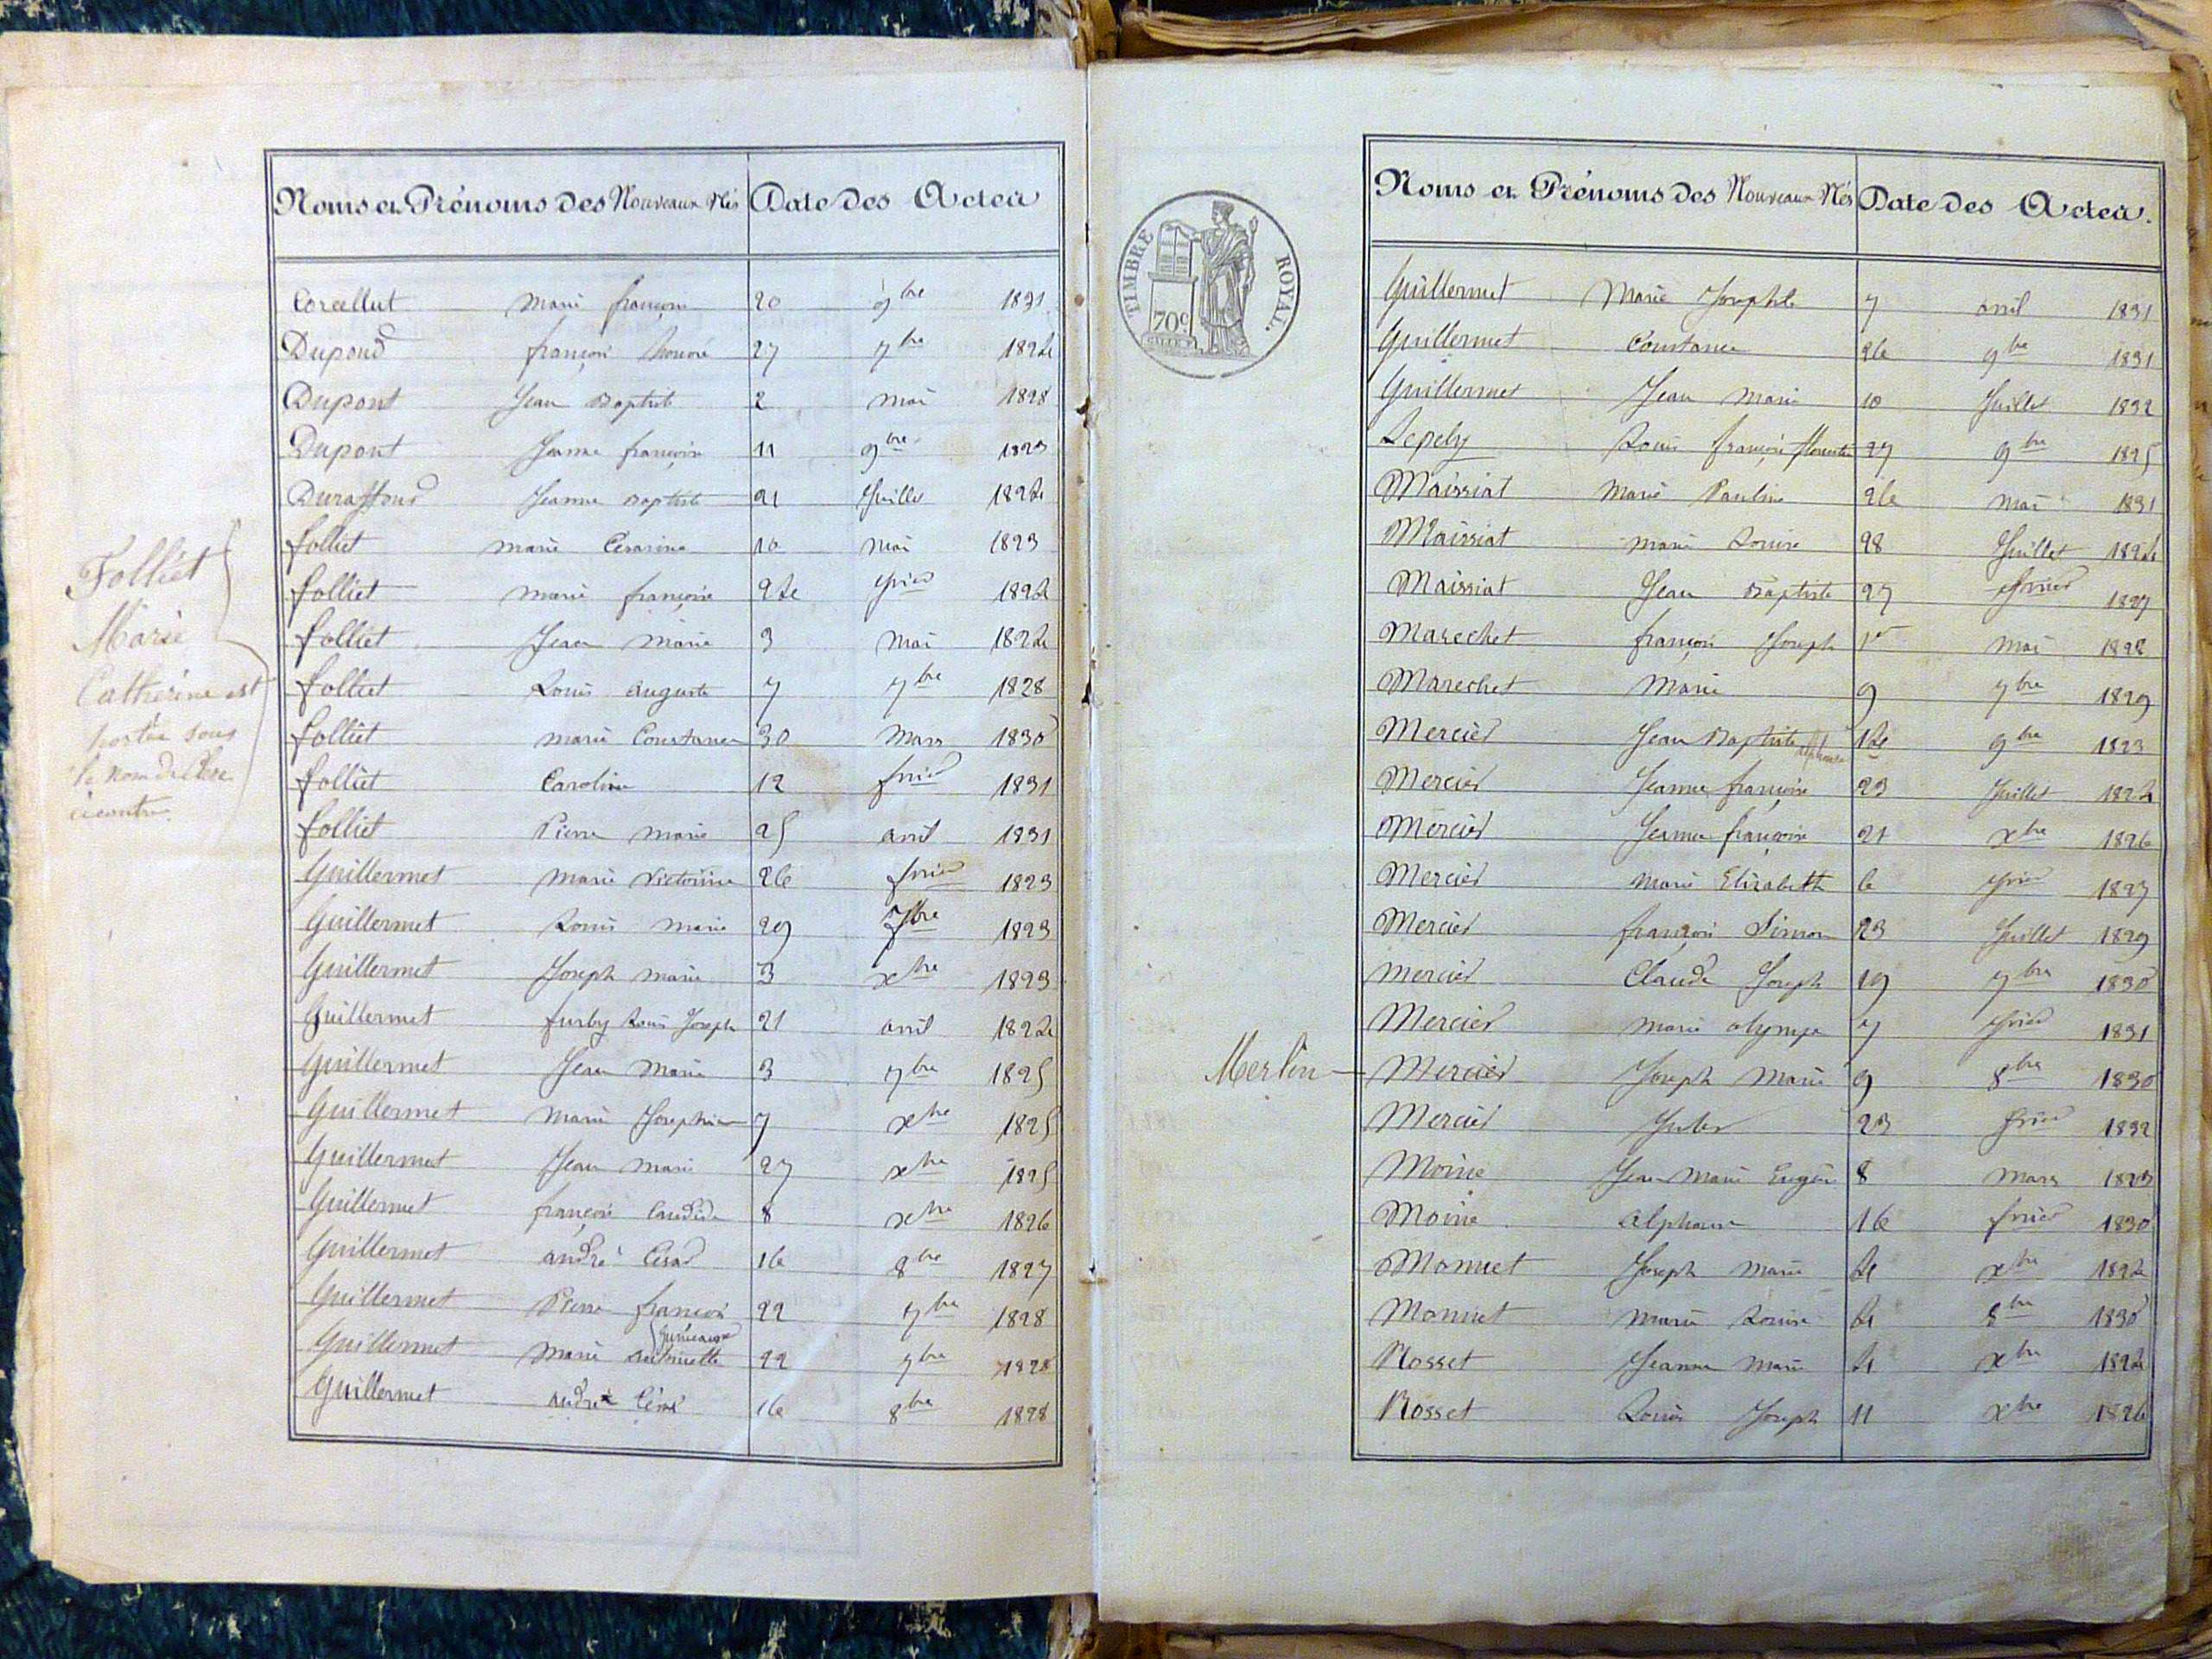 Noms et Prénoms des Nouveaux Nés Date des Actes
Corcellut marie françoise 20 9bre 1831
Dupond françois honoré 27 7bre 1824
Dupont Jean Baptiste 2 mai 1828
Dupont Jeanne françoise 11 9bre 1829
Duraffour Jeanne Baptiste 21 Juillet 1824
folliet marie Césarine 10 mai 1823
folliet marie françoise 24 fvrier 1824
folliet Jean marie 3 mai 1824
folliet Louis auguste 7 7bre 1828
folliet marie Constance 30 mars 1830
folliet Caroline 12 fvrier 1831
folliet Pierre marie 25 avril 1831
Guillermet marie Victorine 26 fvrier 1823
Guillermet Louis marie 29 7bre 1823
Guillermet Joseph marie 3 xbre 1823
Guillermet furby Louis Joseph 21 avril 1824
Guillermet Jean marie 3 7bre 1825
Guillermet marie Josephine 7 xbre 1825
Guillermet Jean marie 27 xbre 1825
Guillermet françois Candide 8 xbre 1826
Guillermet andré César 16 8bre 1827
Guillermet Pierre françois 22 7bre 1828
Jumeaux
Guillermet marie antoinette 22 7bre 1828
Guillermet andré 16 8bre 1828
Folliet
Marie
Catherine est
portée sous
le nom de
ci contre.
TIMBRE ROYAL.
70c
Noms et Prénoms des Nouveaux Nés Date des Actes.
Guillermet Marie Josephte 7 avril 1831
Guillermet Constance 26 9bre 1831
Guillermet Jean marie 10 Juillet 1832
Lepely Louis françois florentin 27 9bre 1825
Maissiat marie Pauline 26 mai 1831
Maissiat marie Louise 28 Juillet 1824
Maissiat Jean Baptiste 27 fvrier 1827
Marechet françois Joseph 1er mai 1828
Marechet marie 9 7bre 1829
Mercier Jean Baptiste alphonse 14 9bre 1823
Mercier Jeanne françoise 23 Juillet 1824
Mercier Jeanne françoise 21 xbre 1826
Mercier marie Elizabeth 6 fvrier 1827
Mercier françois Simon 23 Juillet 1829
mercier Claude Joseph 19 7bre 1830
Mercier marie olympe 7 fvrier 1831
Merlin Mercier Joseph marie 9 8bre 1830
Mercier Jules 23 fvrier 1832
Moine Jean marie Eugène 8 mars 1823
Moine alphonse 16 fvrier 1830
Monnet Joseph marie 4 xbre 1824
Monnet marie Louise 4 8bre 1830
Rosset Jeanne marie 4 xbre 1824
Rosset Louis Joseph 11 xbre 1826